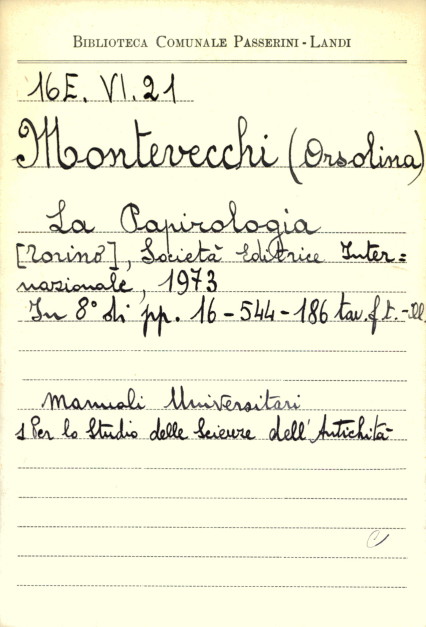 BIBLIOTECA COMUNALE PASSERINI - LANDI
16E. VI. 21
Montevecchi (Orsolina)
La Papirologia
[Torino], Società Editrice Inter=
nazionale, 1973
In 8° di pp. 16 - 544 - 186 tav. f. t. - Ill.
Manuali Universitari
1 Per lo Studio delle Scienze dell'Antichità
C